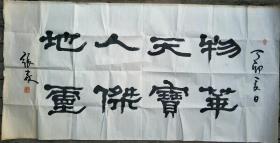 丁卯日
物華
天寶
人傑
地靈
張森